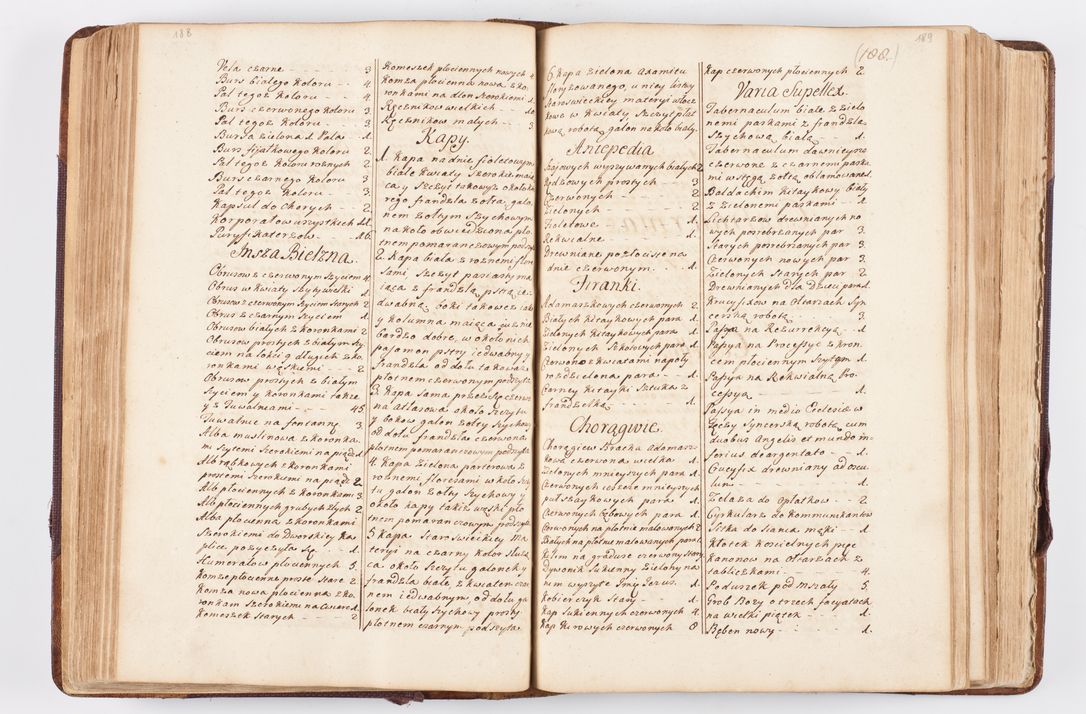 188
Vela czarne 3
Burs białego koloru 4.
Pal tegoż koloru 4.
Burs czerwonego koloru 3
Pal tegoż koloru 3.
Bursa zielona 1. Pala 1.
Burs fijałkowego koloru 2
Pal tegoż koloru rożnych 2
Burs czarnego koloru 3
Pal tegoż koloru 3
Kapsul do Chorych 2.
Korporałow wszystkich
Puryfikaterzow 16
Insza Bielzna
Obrusow z czerwonym szyciem 4.
Obrus w kwiaty 1
Obrusow z czerwonym szyciem starych 2
Obrus z czarnym szyciem 1
Obrusow białych z koronkami 2
Obrusow prostych z białym szy
ciem na łokci 9 długich z ko
ronkami wąskiemi 2
Obrusow prostych z białym
szyciem y koronkami także
y z Tuwalneami 45
Tuwalnie na fontanny 3.
Alba muslinowa z koronka
mi szytemi szerokiemi na piądz 1
Alb rąbkowych z koronkami
prostemi szerokiemi na piądz 2.
Alb płociennych z koronkami 3.
Alb płociennych grubych złych 2
Alba płocienna z koronkami
szerokiemi do Dworskiey Ka
plice pozyczyło się 1.
Humerałow płociennych 5.
Komze płocienne proste stare 2
Komza nowa płocienna z ko
ronkam szerokiemi na cwierc 1
Komeszek starych 2
Komeszek płociennych nowych 4
Komza płocienna nowa z ko
ronkami na dłon szerokiemi 1.
Ręcznikow wielkich 10
Ręcznikow małych 3
Kapy.
1. Kapa na dnie fioletowym
białe kwiaty szerokie maią
ca y szczyt takowyż około ka
py frandzla żołta, galo
nem żołtym szychowym
na koło obwiedziona pło
tnem pomaranczowym podszyta
2. Kapa biała z rożnemi flore
sami, szczyt
iąca z frandzlą pstrą ie
dwabną, boki takowesz iak
y kolumna maiąca
bardzo dobre, w około nich
pasamon pstry iedwabny y
frandzla od dołu takowasz
płotnem czerwonym podszyta
3. Kapa sama przez się czerwo
na atłasowa około szczytu
y bokow galon żołty szychowy
od dołu frandzla czerwona
płotnem pomaranczowym podszyta
4. Kapa zielona parterowa z
rożnemi floresami w koło szczy
tu galon żołty szychowy y
około kapy także wąski pło
tnem pomaranczowym podszyta
5 Kapa staroswieckiey ma
teryi na czarny kolor służą
ca około szczytu galonek y
frandzla białe, z kwiatem czar
nem iedwabnym, od dołu ga
lonek biały szychowy prosty
płotnem czarnym podszyta
189
(188.)
6 Kapa zielona axamitu
floryzowanego, u niey szczyt
staroswieckiey materyi włocz
kowe w kwiaty szczyt płat
kową robotą, galon na koło biały.
Antepedia
Krajowych wyszywanych białych 2
Rydzowych prostych 3
Czerwonych 2
Zielonych 2
Fioletowe 1.
Rekwialne 1.
Drewniane pozłociste na
dnie czerwonym 1.
Firanki.
Adamaszkowych czerwonych 2.
Białych kitaykowych para 1
Zielonych kitaykowych para 1.
Zielonych szkolowych para 1.
Czerwona z kwiatami na poły
rozdzielona para 1.
Czarney kitayki sztuka z
frandzelką 1.
Chorągwie
Chorągiew Bracka adamasz
kowa czerwona wielka 1.
Zielonych mnieyszych para 1
Czerwonych ieszcze mnieyszych
pułszaykowych para 1
Czerwonych grobowych para 1.
Czerwonych na płotnie malowanych 2
Białych na płotnie malowanych para 1.
Kilim na gradusie czerwony stary
Dywonik sukienny zielony na
nim wyszyte Imię Jezus 1.
Kobierczyk stary 1.
Kap sukiennych czerwonych 4
Kap kirowych czerwonych 8
Kap czerwonych płociennych 2.
Varia Supellex
Tabernaculum białe z zielo
nemi paskami z frandzlą
szychową białą 1.
Tabernaculum dawnieysze
czerwone z czarnemi paska
mi wstęgą żołtą oblamowane 1.
Baldachim kitaykowy biały
z zielonemi paskami 1.
Lichtarzow drewnianych no
wych posrebrzanych par 3.
Starych posrebrzanych par 3.
Czerwonych nowych par 3
Zielonych starych par 2
Drewnianych dla Dzieci para 1.
Krucyfixow na Ołtarzach syn
cerską robotą 3.
Passya na Resurrekcyą 1.
Passya na Processye z kron
cem płociennym szytym 1
Passya na Rekwialną Pro
cessya 1.
Passya in medio Ecclesiæ w
Tęczy syncerską robotą cum
duobus Angelis et mundo in
ferius deargentato 1.
Crucyfix drewniany ad oscu
lum 1
Zelaza do Opłatkow 2
Cyrkularz do Kommunikantow
Sitka do siania mąki 1.
Kłotek Koscielnych pięc
Kanonow na Ołtarzach z
tabliczkami 4.
Poduszek pod mszały 5
Grob Bozy o trzech facyatach
na wielki piątek 1.
Bęben nowy 1.